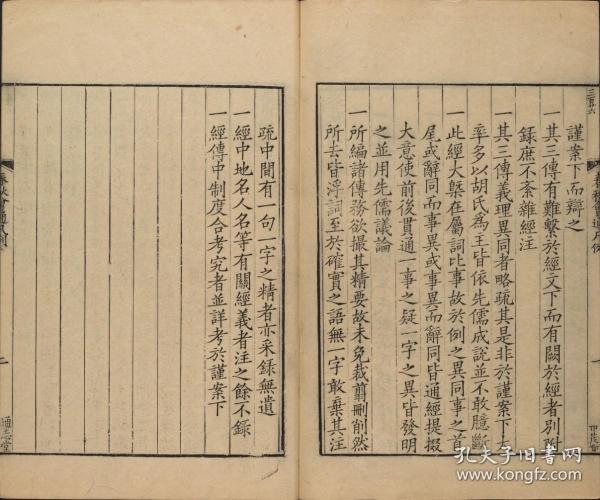 謹案下而辯之
一其三傳有難繫於經文下而有關於經者别附
錄庶不紊雜經注
一其三傳義理異同者略疏其是非於謹案下大
率多以胡氏為主皆依先儒成説並不敢臆斷
一此經大槩在屬詞比事故於例之異同事之首
尾或辭同而事異或事異而辭同皆通經提掇
大意使前後貫通一事之疑一字之異皆發明
之並用先儒議論
一所編諸傳務欲撮其精要故未免裁翦刪削然
所去皆浮詞至於確實之語無一字敢棄其注
疏中間有一句一字之精者亦采録無遺
一經中地名人名等有關經義者注之餘不録
一經傳中制度合考究者並詳考於謹案下
通志堂
孔夫子旧书网
www.kongfz.com